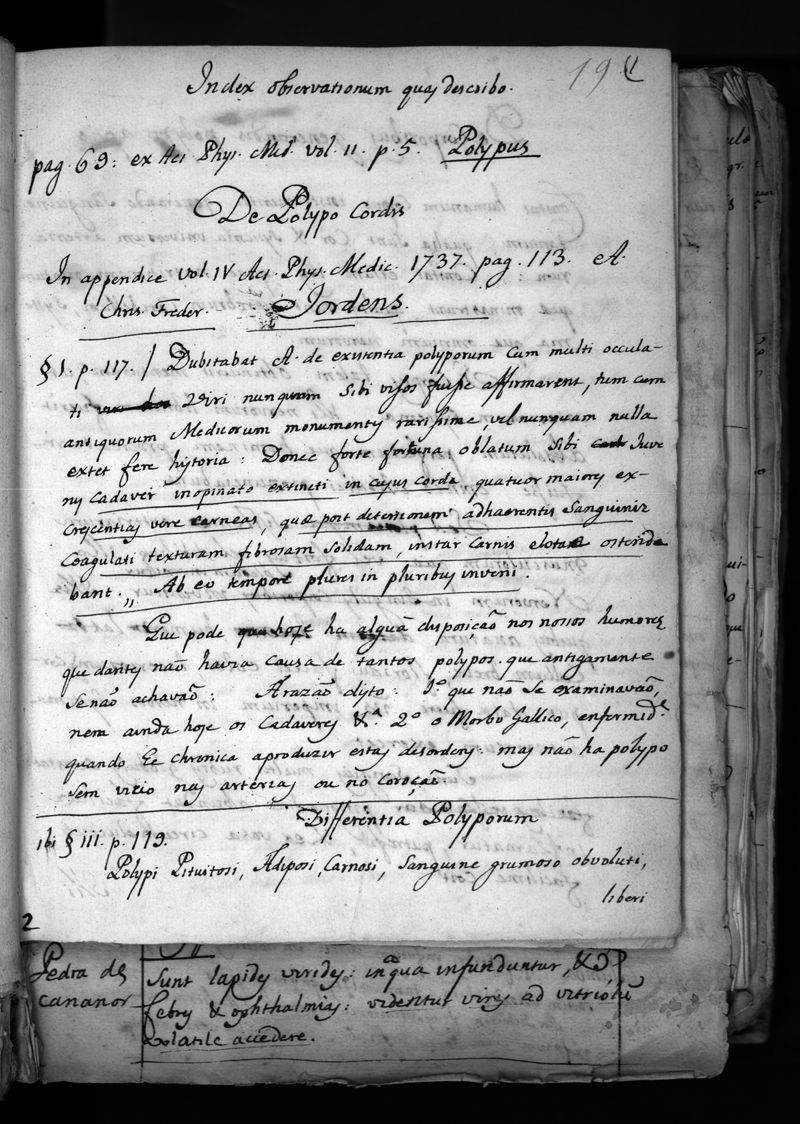 191
Index observationum quas describo.
pag. 69: ex Act Phys. Med. vol. 11. p. 5. Polypus
De Polypo Cordis
In appendice Vol. IV Act. Phys. Medic. 1737. pag. 113. A.
Chris. Freder. Jordens.
§ 1. p. 117. / Dubitabat A. de existentia polyporum cum multi occula-
ti viri nunquam sibi visos fuisse affirmarent, tum cum
antiquorum Medicorum monumentis rarissime, vel nunquam nulla
extet fere historia: Donec forte fortuna oblatum sibi Juve
nis cadaver inopinato extincti in cujus corde, quatuor maiores ex-
crescentias vere carneas, quæ post detersionem adhaerentis Sanguinis
Coagulati texturam fibrosam solidam, instar carnis elotæ ostende
bant. „ Ab eo tempore plures in pluribus inveni.
Que pode ha algũa disposiçaõ nos nossos humores
que dantes naõ havia causa de tantos polypos. que antigamente
se naõ achavaõ: A razaõ disto: 1.º que naõ se examinavaõ,
nem ainda hoje os Cadaveres &ª. 2º o Morbo Gallico, enfermid.e
quando he chronica a produzir estas desordens: mas naõ ha polypo
sem vicio nas arterias ou no coroçaõ.
Differentia Polyporum
ibi § iii. p. 119.
Polypi Pituitosi, Adiposi, Carnosi, Sanguine grumoso obvoluti,
liberi
2
Pedra de
Cananor
Sunt lapides virides: in qua infunduntur,
febris & ophthalmias: videntur vires ad vitriolũ
volatile accedere.